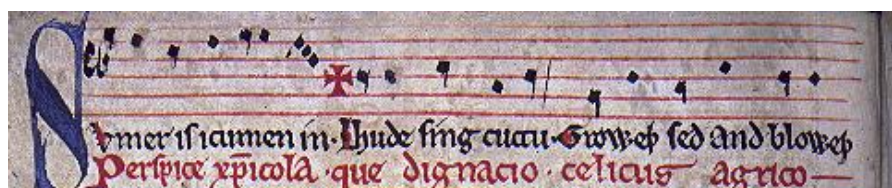 Svmer is icumen in· Lhude sing cuccu· Groweþ sed and bloweþ
Perspice xp̄icola· que dignacio· celicus agrico—